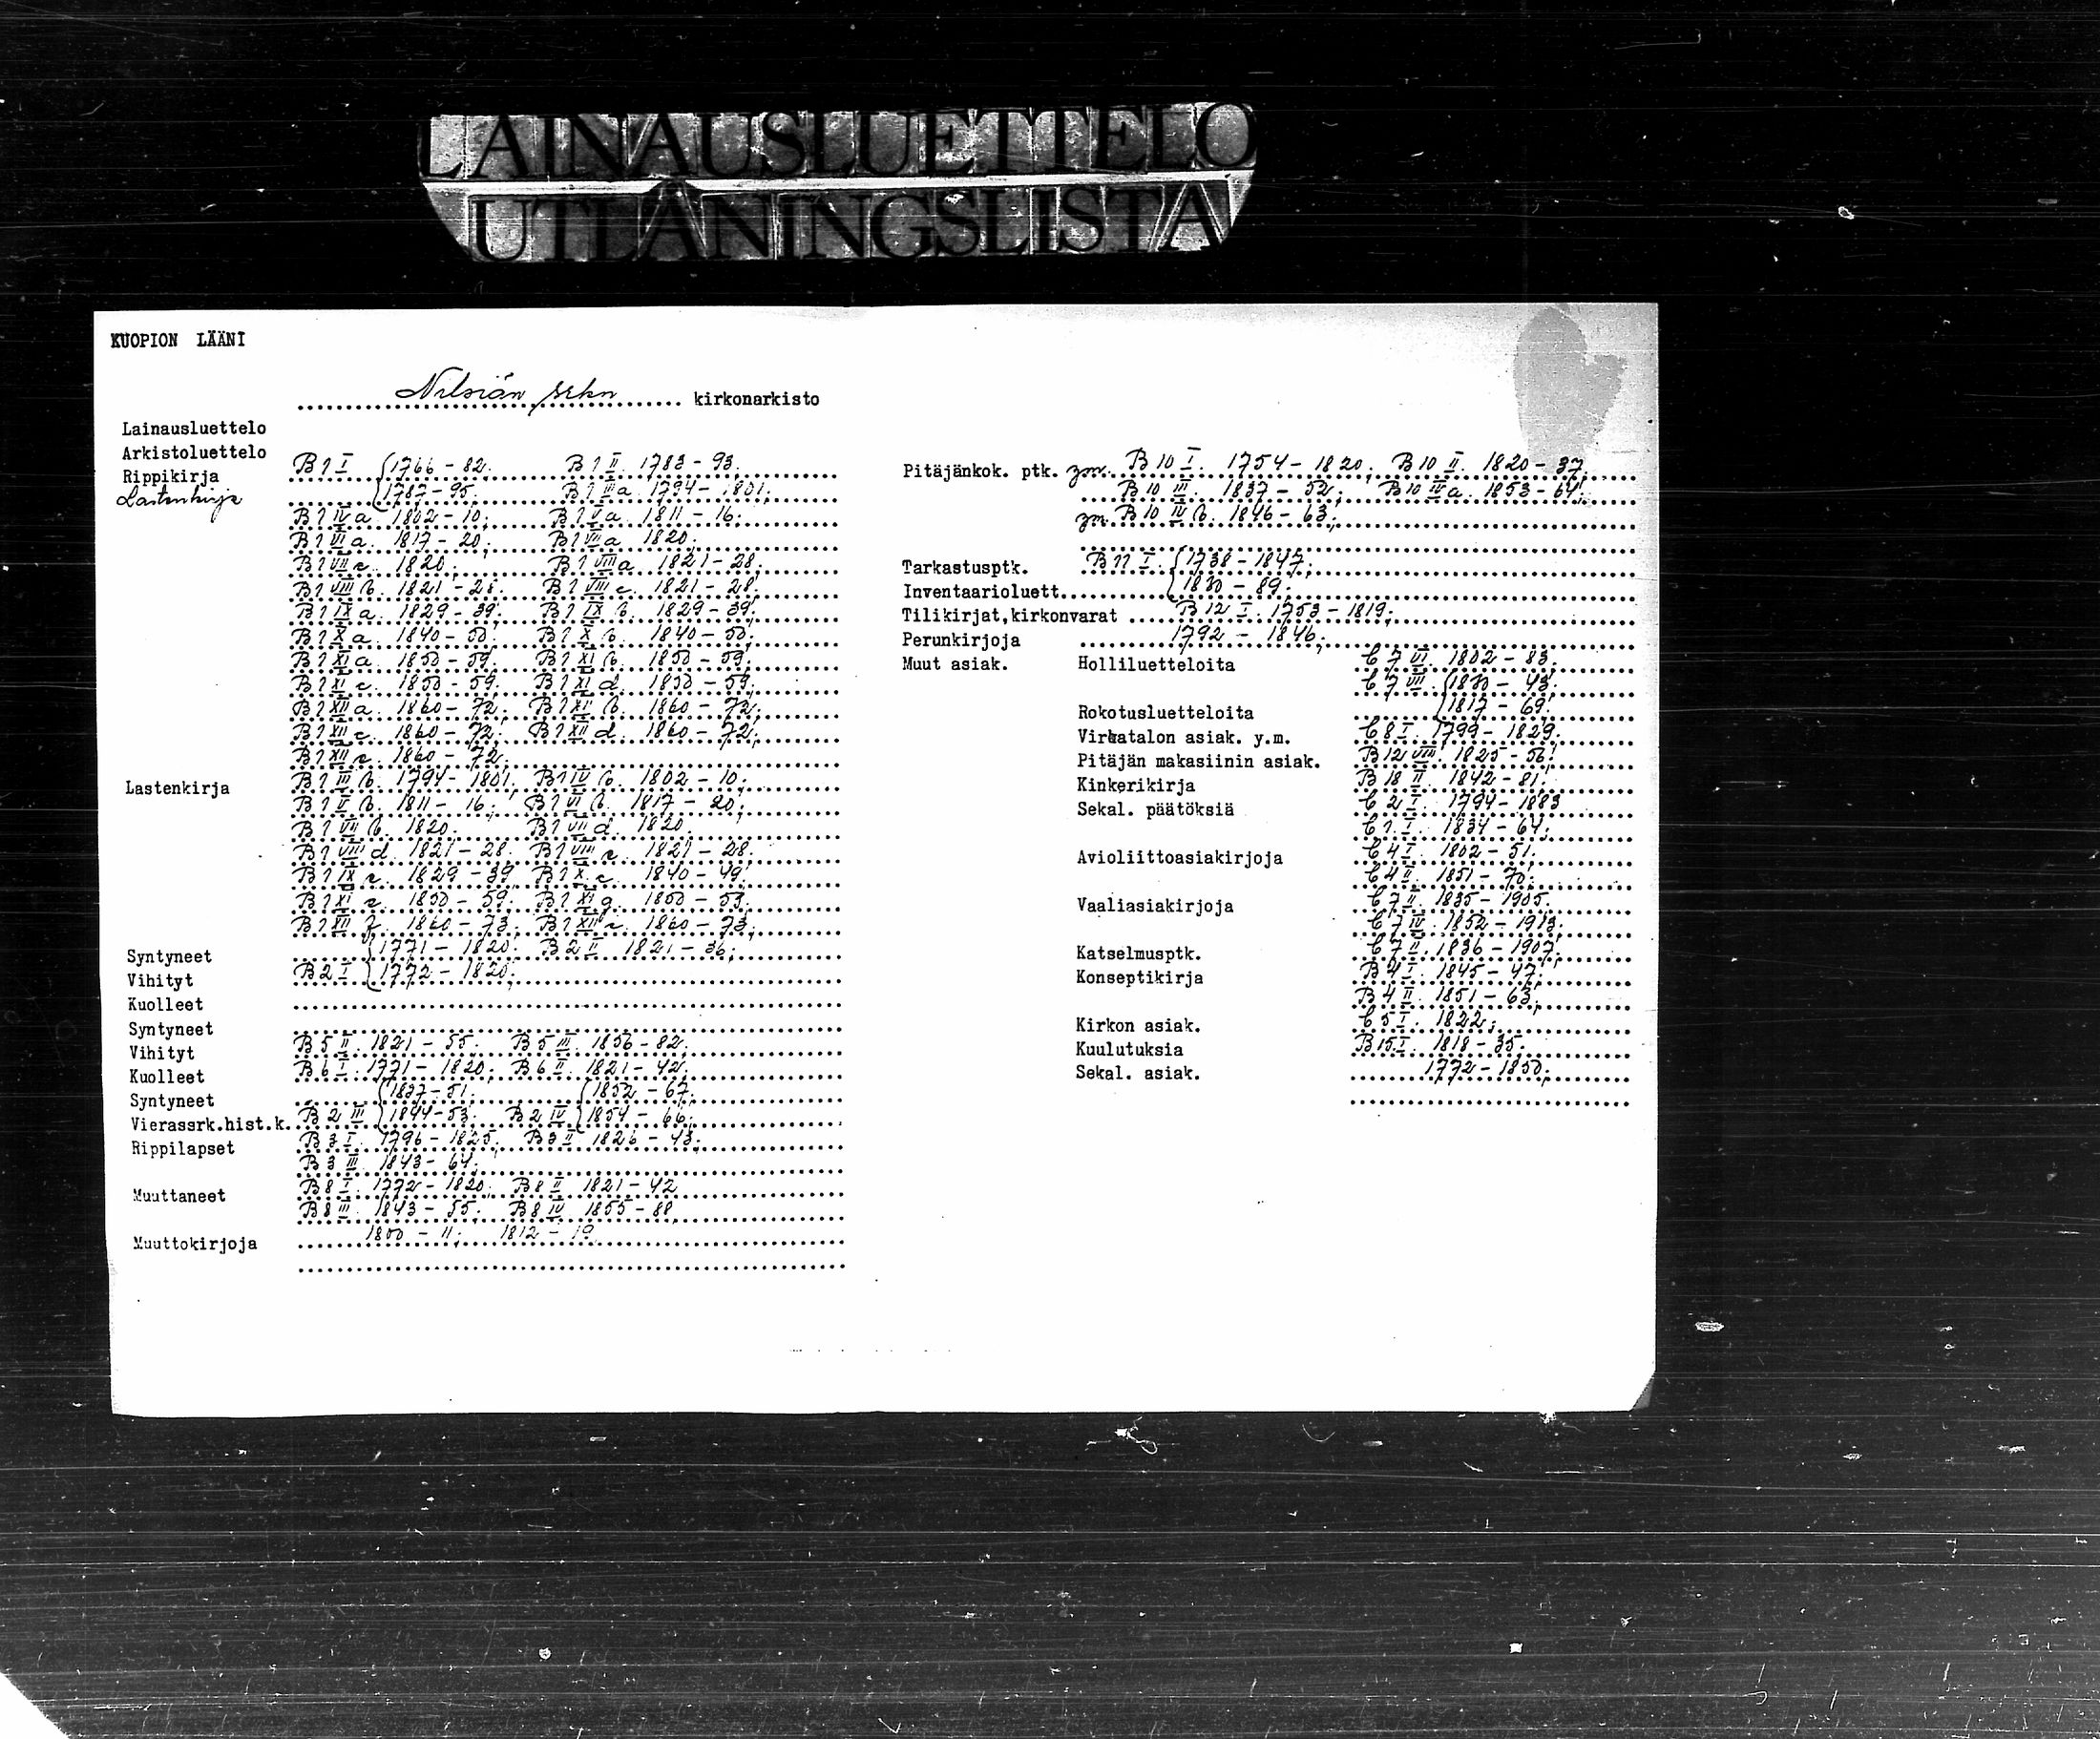 LAINAUSLUETTELO
UTLÅNINGSLISTA
KUOPION LÄÄNI
Nilsiän srkn kirkonarkisto
Lainausluettelo
Arkistoluettelo
Rippikirja B1 I {1766 - 82. B1 II. 1783 - 93.
Lastenkirja {1787 - 95. B1 III a. 1794 - 1801;
B1 IV a. 1802 - 10; B1 V a. 1811 - 16;
B1 VI a. 1817 - 20; B1 VII a. 1820.
B1 VII c. 1820; B1 VIII a. 1821 - 28;
B1 VIII b. 1821 - 28. B1 VIII c. 1821 - 28;
B1 IX a. 1829 - 39; B1 IX b. 1829 - 39;
B1 X a. 1840 - 50; B1 X b. 1840 - 50;
B1 XI a. 1850 - 59; B1 XI b. 1850 - 59;
B1 XI c. 1850 - 59. B1 XI d. 1850 - 59;
B1 XII a. 1860 - 72; B1 XII b. 1860 - 72;
B1 XII c. 1860 - 72; B1 XII d. 1860 - 72;
B1 XII e. 1860 - 72.
Lastenkirja B1 III b. 1794 - 1801; B1 IV b. 1802 - 10;
B1 V b. 1811 - 16; B1 VI b. 1817 - 20;
B1 VII b. 1820. B1 VII d. 1820.
B1 VIII d. 1821 - 28. B1 VIII e. 1821 - 28.
B1 IX c. 1829 - 39 B1 X c. 1840 - 49;
B1 XI e. 1850 - 59. B1 XI g. 1850 - 59.
B1 XII f. 1860 - 73. B1 XII 1860 - 73;
Syntyneet {1771 - 1820. B2 II 1821 - 36;
Vihityt B2 I {1772 - 1820;
Kuolleet
Syntyneet
Vihityt B5 II. 1821 - 55. B5 III. 1856 - 82.
Kuolleet B6 I. 1771 - 1820; B6 II. 1821 - 42.
Syntyneet {1837 - 51. {1852 - 67;
Vierassrk.hist.k. B2 III {1844 - 53. B2 IV {1854 - 66;
Rippilapset B3 I. 1796 - 1825; B3 II 1826 - 43;
B3 III. 1843 - 64;
Muuttaneet B8 I. 1772 - 1820. B8 II 1821 - 42
B8 III. 1843 - 55. B8 IV 1855 - 88
Muuttokirjoja 1800 - 11; 1812 - 19
Pitäjänkok. ptk. B10 I. 1754 - 1820; B10 II. 1820 - 37.
B10 III. 1837 - 52; B10 IV a. 1853 - 64.
B10 IV b. 1846 - 63;
Tarkastusptk. B11 I. {1738 - 1847;
Inventaarioluett. {1830 - 89.
Tilikirjat,kirkonvarat B12 I. 1753 - 1819;
Perunkirjoja 1792 - 1846;
Muut asiak. Holliluetteloita C7 VI. 1802 - 83.
C7 VII. {1830 - 43.
Rokotusluetteloita {1817 - 69.
Virkatalon asiak. y.m. C8 I. 1799 - 1829.
Pitäjän makasiinin asiak. B12 VIII. 1825 - 56.
Kinkerikirja B18 II. 1842 - 81;
Sekal. päätöksiä C2 I. 1794 - 1883
C1 I. 1834 - 64;
Avioliittoasiakirjoja C4 I. 1802 - 51.
C4 II. 1851 - 70;
Vaaliasiakirjoja C7 II. 1835 - 1905.
C7 IV. 1852 - 1913.
Katselmusptk. C7 II. 1836 - 1907.
Konseptikirja B4 I. 1845 - 47.
B4 II. 1851 - 63;
Kirkon asiak. C5 I. 1822;
Kuulutuksia B15 I. 1818 - 35.
Sekal. asiak. 1772 - 1850;